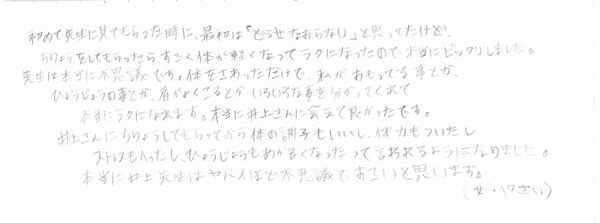 初めて先生に見てもらった時に、最初は「どうせなおらない」と思ってたけど、
ちりょうをしてもらったらすごく体が軽くなってラクになったので本当にビックリしました。
先生は本当に不思議です。体をさわっただけで、私がおもってる事とか、
ひょうじょうの事とか、肩がよくこるとかいろいろな事を分かってくれて
本当にラクになれます。本当に井上さんに会えて良かったです。
井上さんにちりょうしてもらってから体の調子もいいし、体力もついたし
ストレスもへったし、ひょうじょうもあかるくなったって言われるようになりました。
本当に井上先生はヤバイほど不思議ですごいと思います。
(女・17さい)